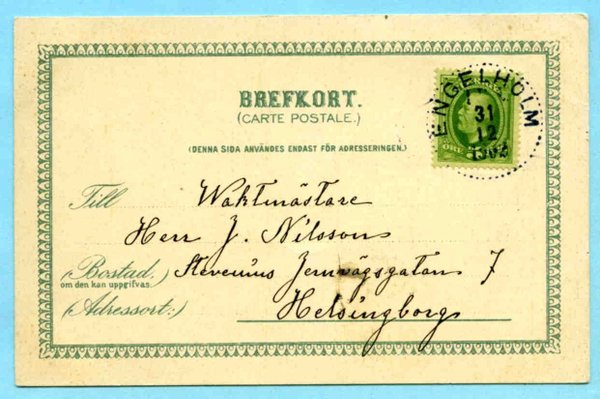 BREFKORT.
(CARTE POSTALE.)
(DENNA SIDA ANVÄNDES ENDAST FÖR ADRESSERINGEN.)
ENGELHOLM
31
12
ÖRE
Till Waktmästare
Herr J. Nilsson
(Bostad.) Jernvägsgatan 7
om den kan uppgifvas.
(Adressort:) Helsingborg